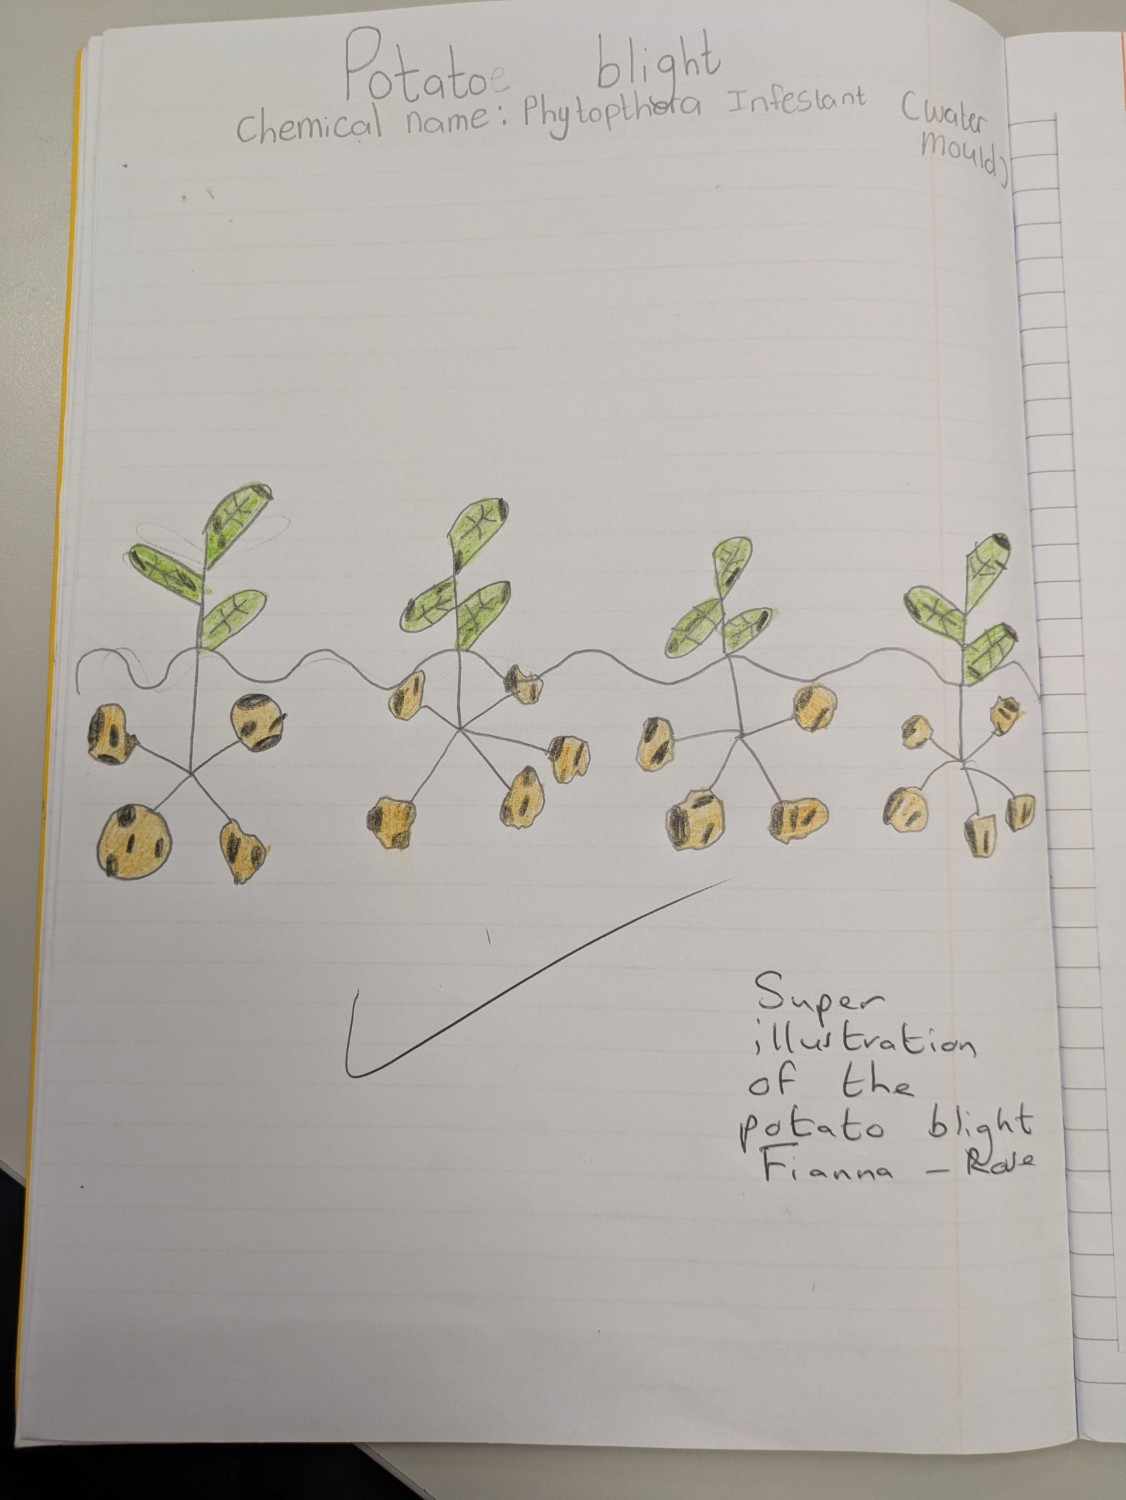 Potatoe blight
Chemical name: Phytopthora Infestant (water
mould)
Super
illustration
of the
potato blight
Fianna - Rose